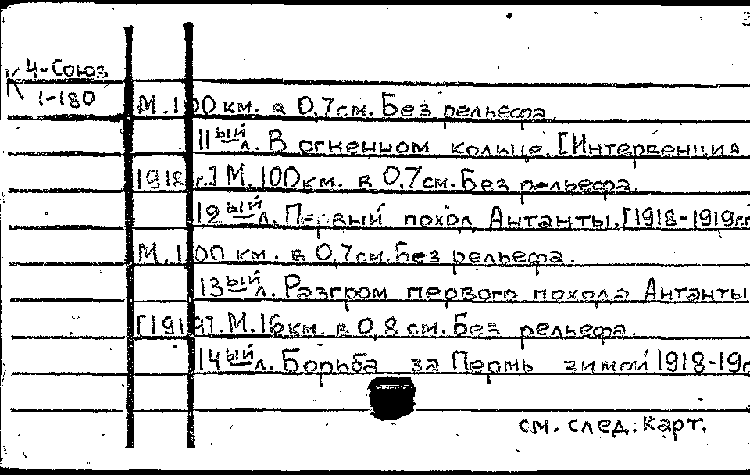 4-Союз
К 1-180
М.100 км. в 0,7 см. Без рельефа
11ый л. В огненном кольце. [Интервенция
1918 г.] М. 100 км. в 0,7 см. Без рельефа.
12ый л. Первый поход Антанты. [1918-1919гг
М. 100 км. в 0,7 см. Без рельефа.
13ый л. Разгром первого похода Антанты
[1919]. М. 16 км. в 0,8 см. Без рельефа.
14ый л. Борьба за Пермь зимой 1918-19г
см. след. карт.